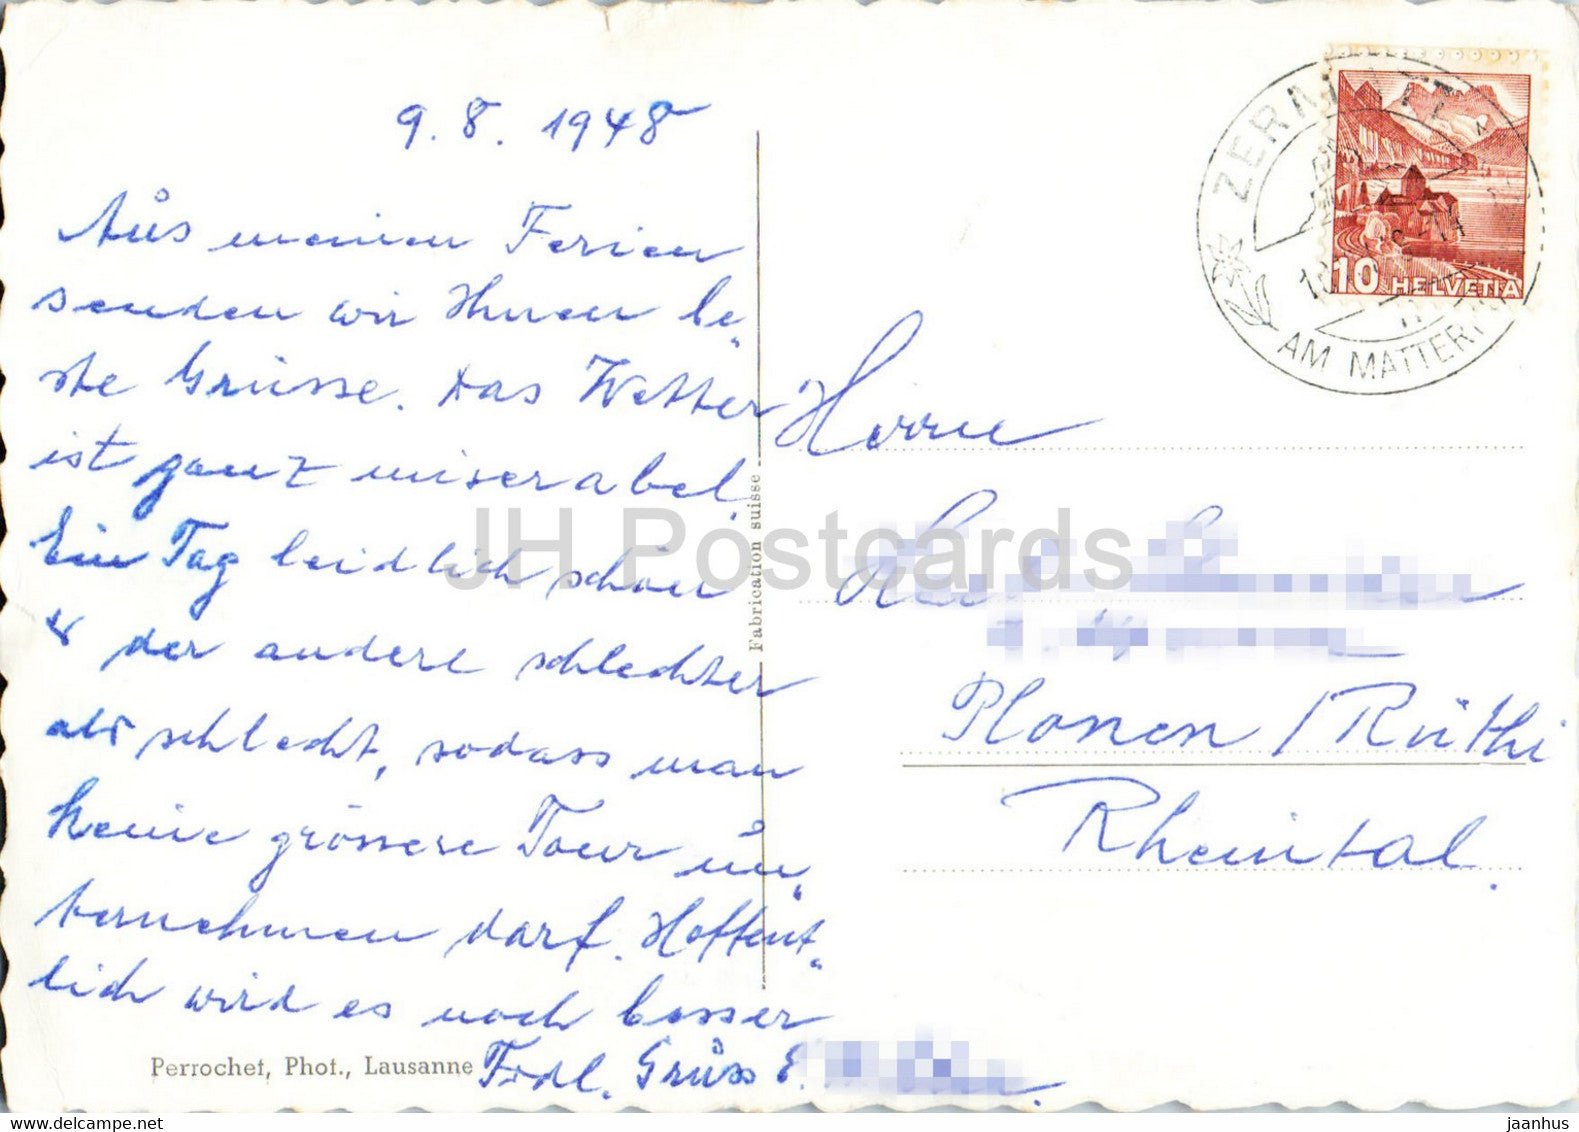 9. 8. 1948
Aus meinen Ferien
senden wir Ihnen be„
ste Grüsse. Das Wetter
ist ganz miserabel.
Ein Tag leidlich schön
der andere schlechter
als schlecht, sodass man
keine grössere Tour un„
ternehmen darf. Hoffent„
lich wird es noch besser
Frdl. Gruss E.
Perrochet, Phot., Lausanne
Fabrication suisse
ZERMATT
AM MATTERH
10 HELVETIA
Herrn
Plonen / Rüthi
Rheintal.
JH Postcards
jaanhus